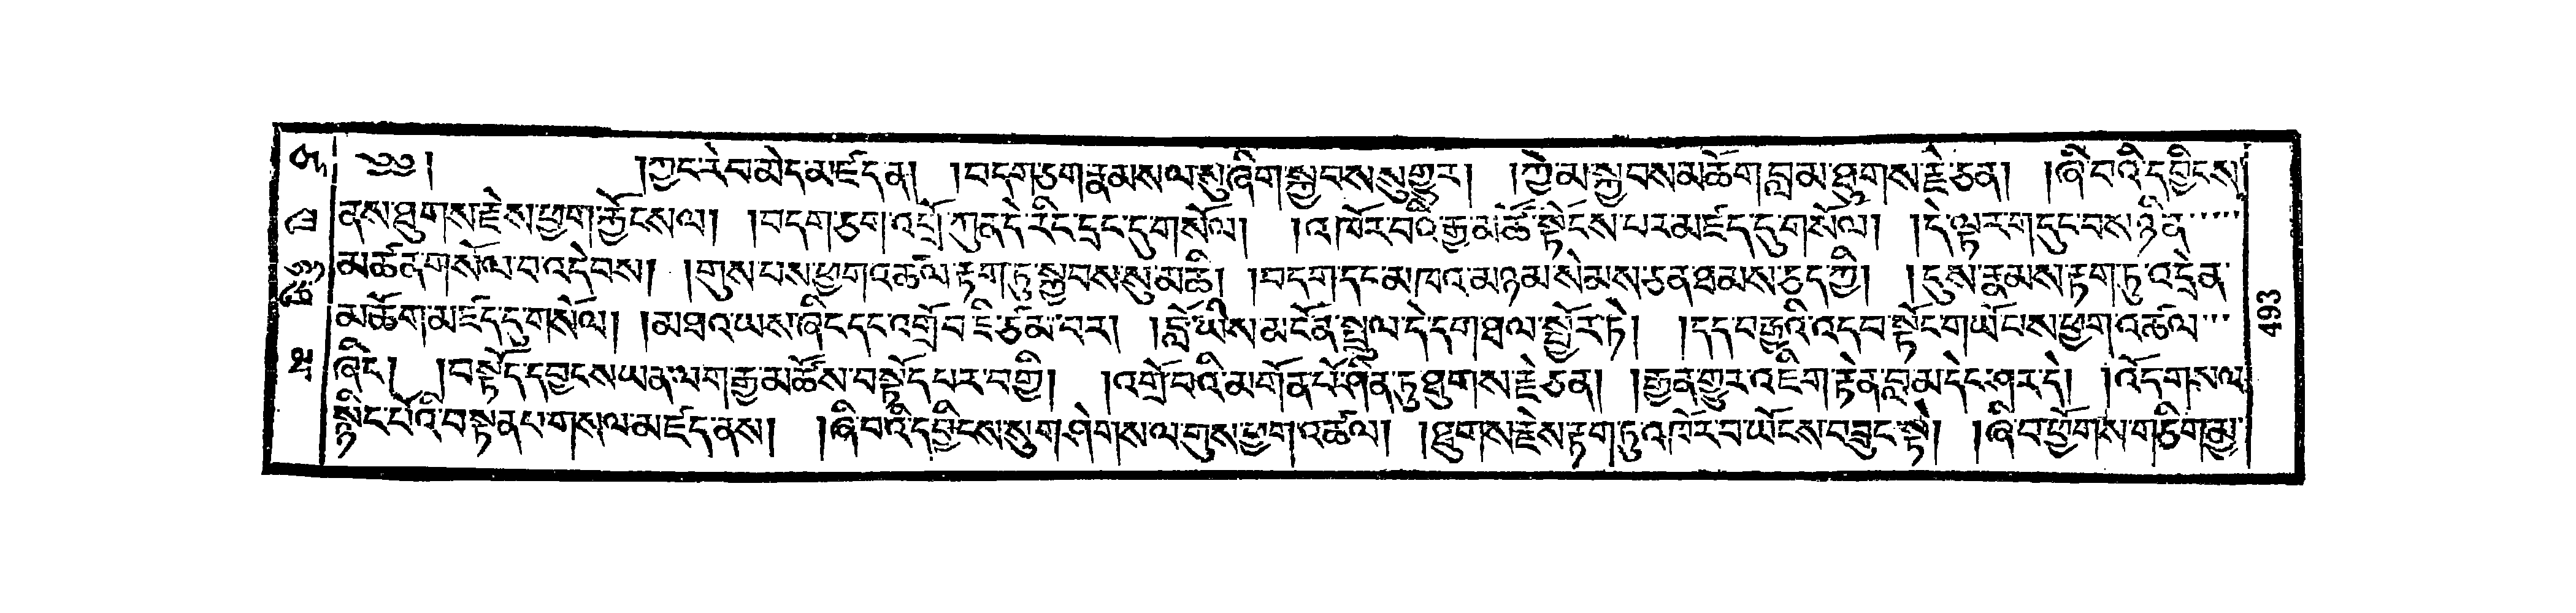 ༄༅། །ཀྱང་རེ་བ་མེད་མཛད་ན། །བདག་ཅག་རྣམས་ལ་སུ་ཞིག་སྐྱབས་སུ་གྱུར། །ཀྱེ་མ་སྐྱབས་མཆོག་བླ་མ་ཐུགས་རྗེ་ཅན། །ཞི་བའི་དབྱིངས་
ནས་ཐུགས་རྗེས་ཕྱག་རྐྱོངས་ལ། །བདག་ཅག་འགྲོ་ཀུན་དེ་རིང་དྲང་དུ་གསོལ། །འཁོར་བའི་རྒྱ་མཚོ་སྟོངས་པར་མཛད་དུ་གསོལ། །དེ་ལྟར་གདུང་བས་ཉིན་.....
མཚན་གསོལ་བ་འདེབས། །གུས་པས་ཕྱག་འཚལ་རྟག་ཏུ་སྐྱབས་སུ་མཆི། །བདག་དང་མཁའ་མཉམ་སེམས་ཅན་ཐམས་ཅད་ཀྱི། །དུས་རྣམས་རྟག་ཏུ་འདྲེན་
མཆོག་མཛད་དུ་གསོལ། །མཐའ་ཡས་ཞིང་དང་འགྲོ་བ་ཇི་ཙམ་པར། །བློ་ཡིས་མངོན་སྤྲུལ་དེ་དག་ཐལ་སྦྱོར་ཏེ། །དད་བརྒྱའི་འདབ་སྟོང་གཡོངས་ཕྱག་འཚལ་...
ཞིང་། །བསྟོད་དབྱངས་ཡན་ལག་རྒྱ་མཚོས་བསྟོད་པར་བགྱི། །འགྲོ་བའི་མགོན་པོ་ཤིན་ཏུ་ཐུགས་རྗེ་ཅན། །རྒྱན་གྱུར་འཇིག་རྟེན་བླ་མ་དེང་ཤར་དེ། །འོད་གསལ་
སྙིང་པོའི་བསྟན་པ་གསལ་མཛད་ནས། །ཞི་བའི་དབྱིངས་སུ་གཤེགས་ལ་གུས་ཕྱག་འཚལ། །ཐུགས་རྗེས་རྟག་ཏུ་འཁོར་བ་ཡོངས་བཟུང་སྟེ། །ཞི་བ་ཕྱོགས་གཅིག་མྱ་